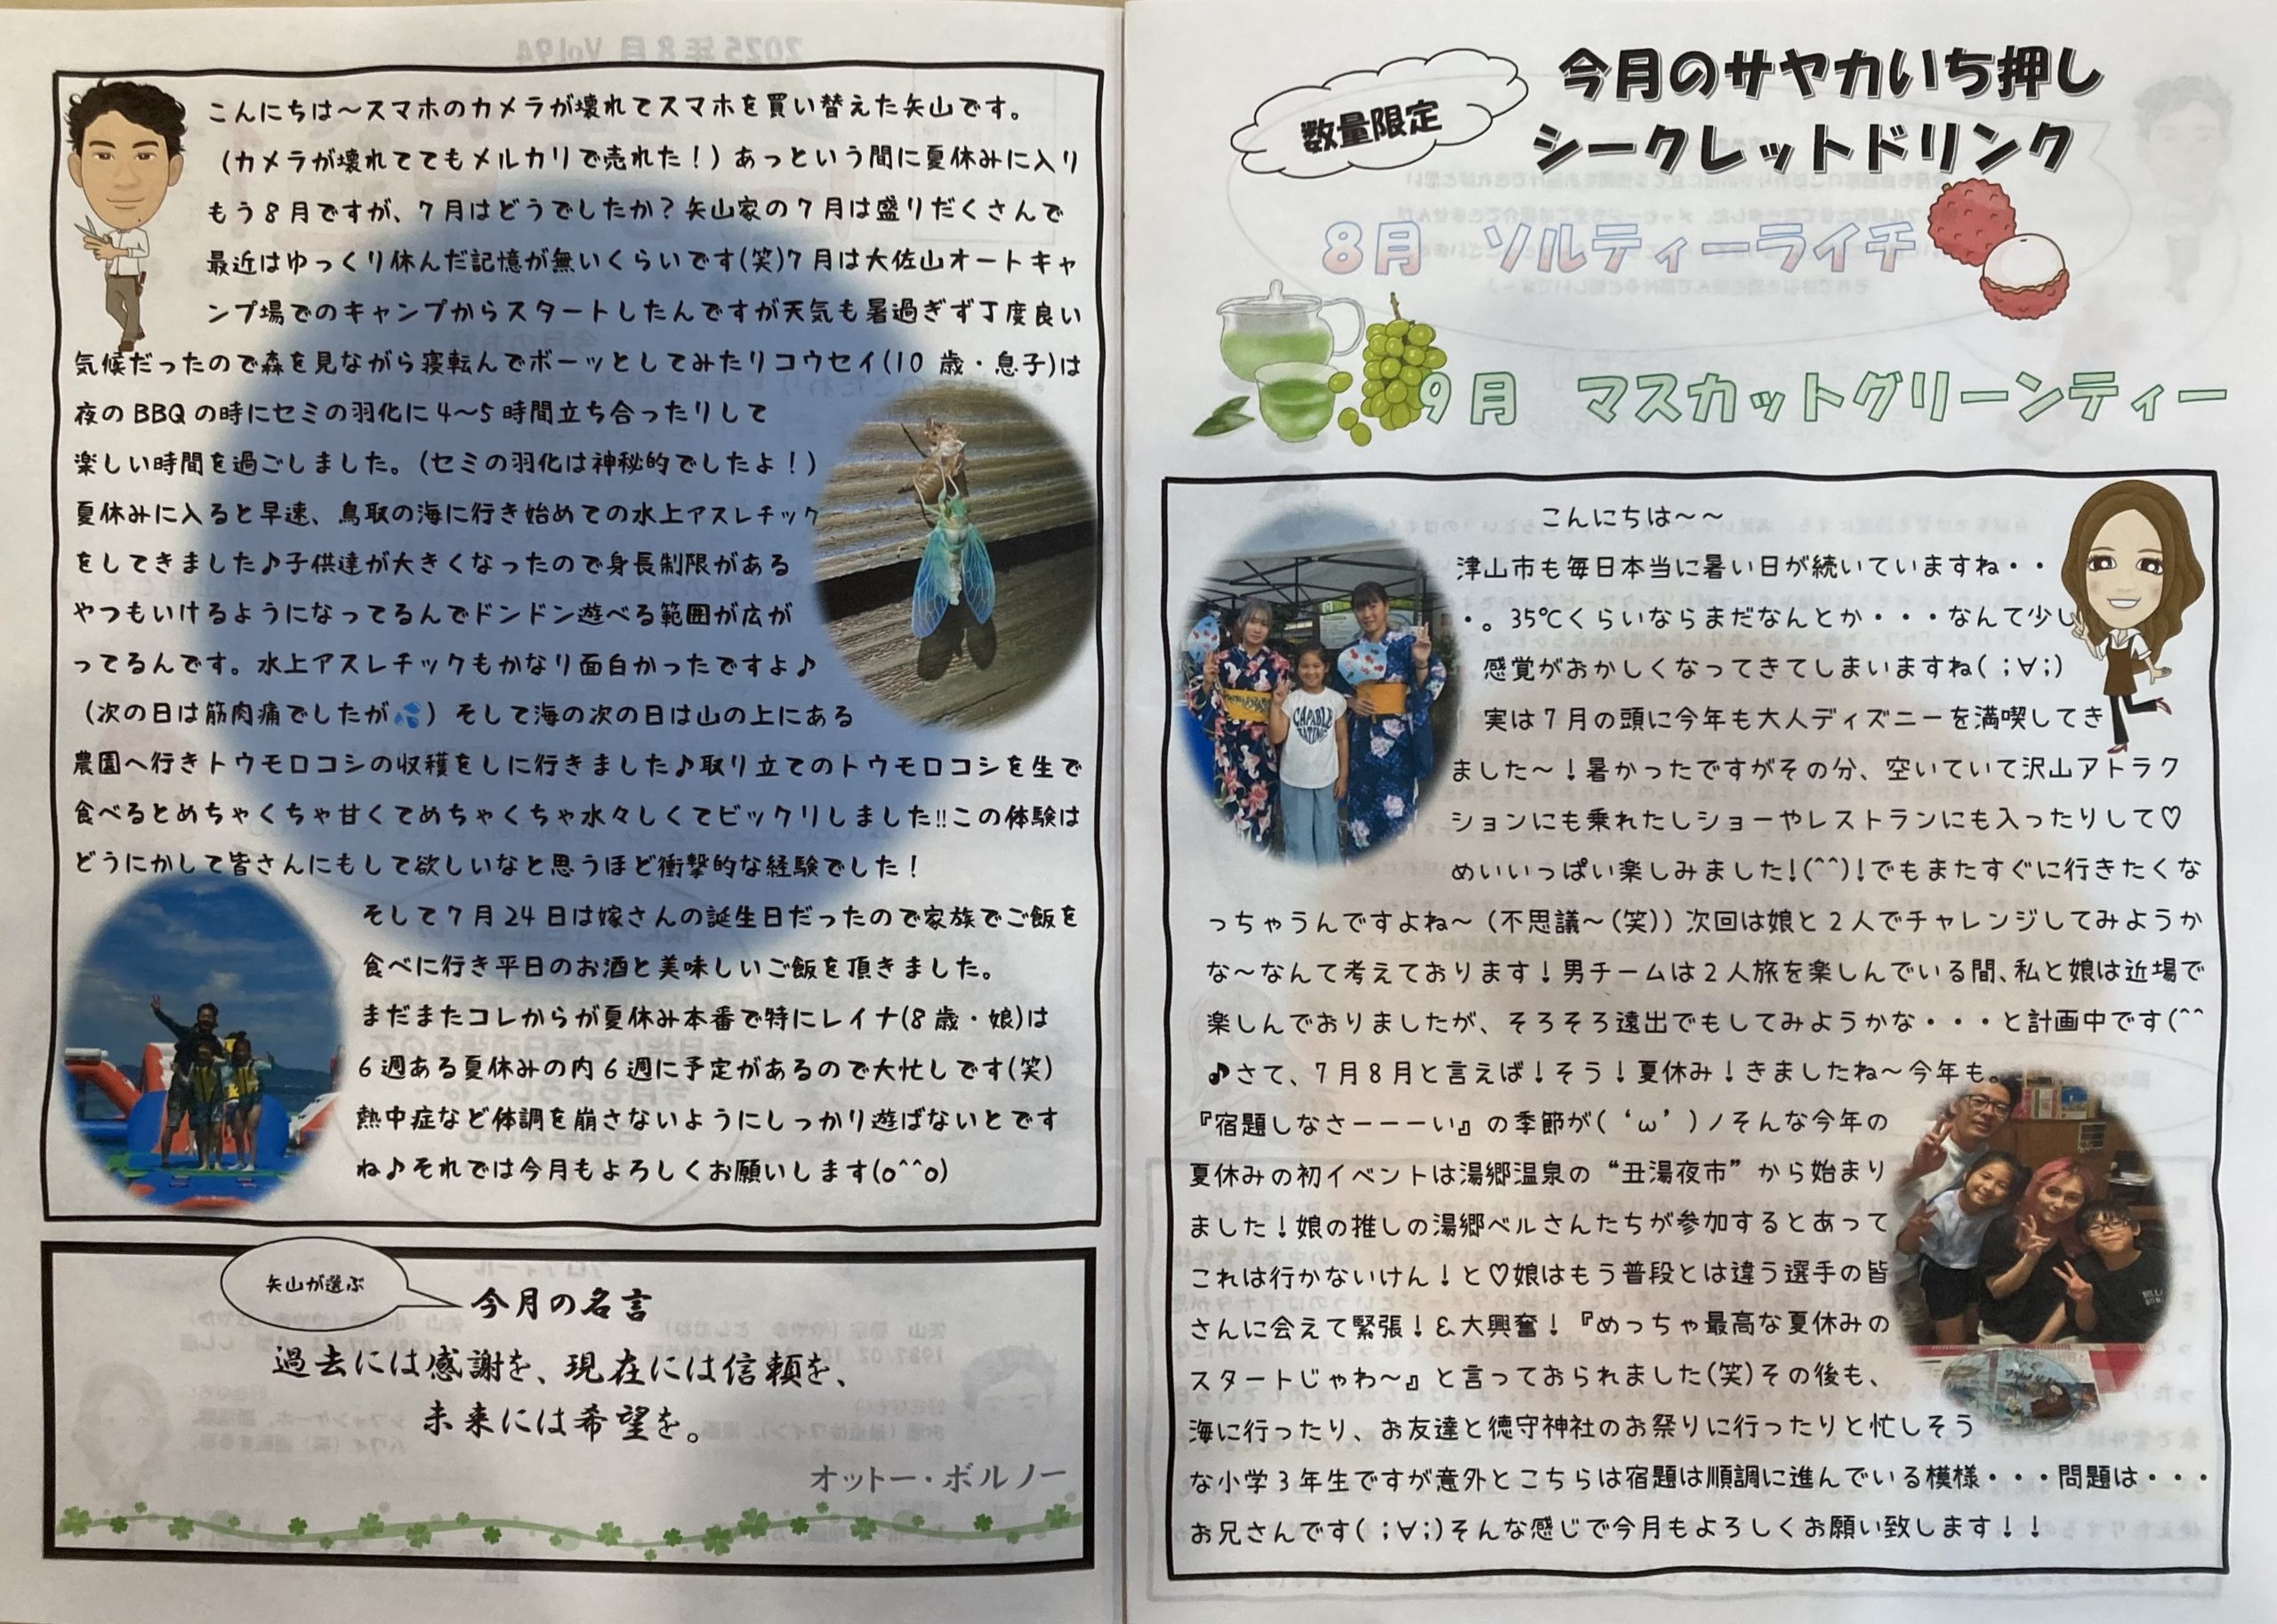 こんにちは～スマホのカメラが壊れてスマホを買い替えた矢山です。
（カメラが壊れててもメルカリで売れた！）あっという間に夏休みに入り
もう８月ですが、７月はどうでしたか？矢山家の７月は盛りだくさんで
最近はゆっくり休んだ記憶が無いくらいです(笑)７月は大佐山オートキャ
ンプ場でのキャンプからスタートしたんですが天気も暑過ぎず丁度良い
気候だったので森を見ながら寝転んでボーッとしてみたりコウセイ(10 歳・息子)は
夜のBBQの時にセミの羽化に4～5時間立ち合ったりして
楽しい時間を過ごしました。（セミの羽化は神秘的でしたよ！）
夏休みに入ると早速、鳥取の海に行き始めての水上アスレチック
をしてきました♪子供達が大きくなったので身長制限がある
やつもいけるようになってるんでドンドン遊べる範囲が広が
ってるんです。水上アスレチックもかなり面白かったですよ♪
（次の日は筋肉痛でしたが💦）そして海の次の日は山の上にある
農園へ行きトウモロコシの収穫をしに行きました♪取り立てのトウモロコシを生で
食べるとめちゃくちゃ甘くてめちゃくちゃ水々しくてビックリしました!!この体験は
どうにかして皆さんにもして欲しいなと思うほど衝撃的な経験でした！
そして７月24日は嫁さんの誕生日だったので家族でご飯を
食べに行き平日のお酒と美味しいご飯を頂きました。
まだまたコレからが夏休み本番で特にレイナ(8歳・娘)は
6週ある夏休みの内6週に予定があるので大忙しです(笑)
熱中症など体調を崩さないようにしっかり遊ばないとです
ね♪それでは今月もよろしくお願いします(o^^o)
矢山が選ぶ
今月の名言
過去には感謝を、現在には信頼を、
未来には希望を。
オットー・ボルノー
数量限定
今月のサヤカいち押し
シークレットドリンク
8月　ソルティーライチ
9月　マスカットグリーンティー
こんにちは～～
津山市も毎日本当に暑い日が続いていますね・・
・。35℃くらいならまだなんとか・・・なんて少し
感覚がおかしくなってきてしまいますね( ;∀;)
実は７月の頭に今年も大人ディズニーを満喫してき
ました～！暑かったですがその分、空いていて沢山アトラク
ションにも乗れたしショーやレストランにも入ったりして♡
めいいっぱい楽しみました!(^^)!でもまたすぐに行きたくな
っちゃうんですよね～（不思議～(笑)）次回は娘と２人でチャレンジしてみようか
な～なんて考えております！男チームは２人旅を楽しんでいる間、私と娘は近場で
楽しんでおりましたが、そろそろ遠出でもしてみようかな・・・と計画中です(^^
♪さて、７月８月と言えば！そう！夏休み！きましたね～今年も。
『宿題しなさーーーい』の季節が( ‘ω’ )ノそんな今年の
夏休みの初イベントは湯郷温泉の“丑湯夜市”から始まり
ました！娘の推しの湯郷ベルさんたちが参加するとあって
これは行かないけん！と♡娘はもう普段とは違う選手の皆
さんに会えて緊張！＆大興奮！『めっちゃ最高な夏休みの
スタートじゃわ～』と言っておられました(笑)その後も、
海に行ったり、お友達と徳守神社のお祭りに行ったりと忙しそう
な小学3年生ですが意外とこちらは宿題は順調に進んでいる模様・・・問題は・・・
お兄さんです( ;∀;)そんな感じで今月もよろしくお願い致します！！